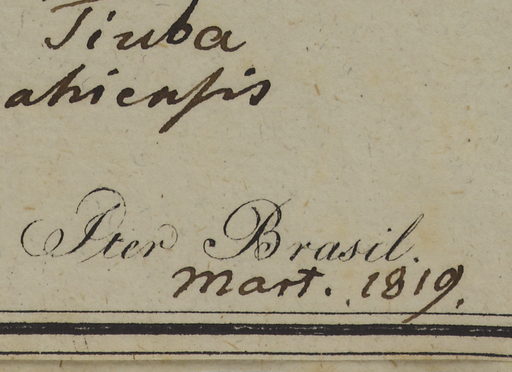 Tiuba
ahiensis
Iter Brasil.
Mart. 1819.